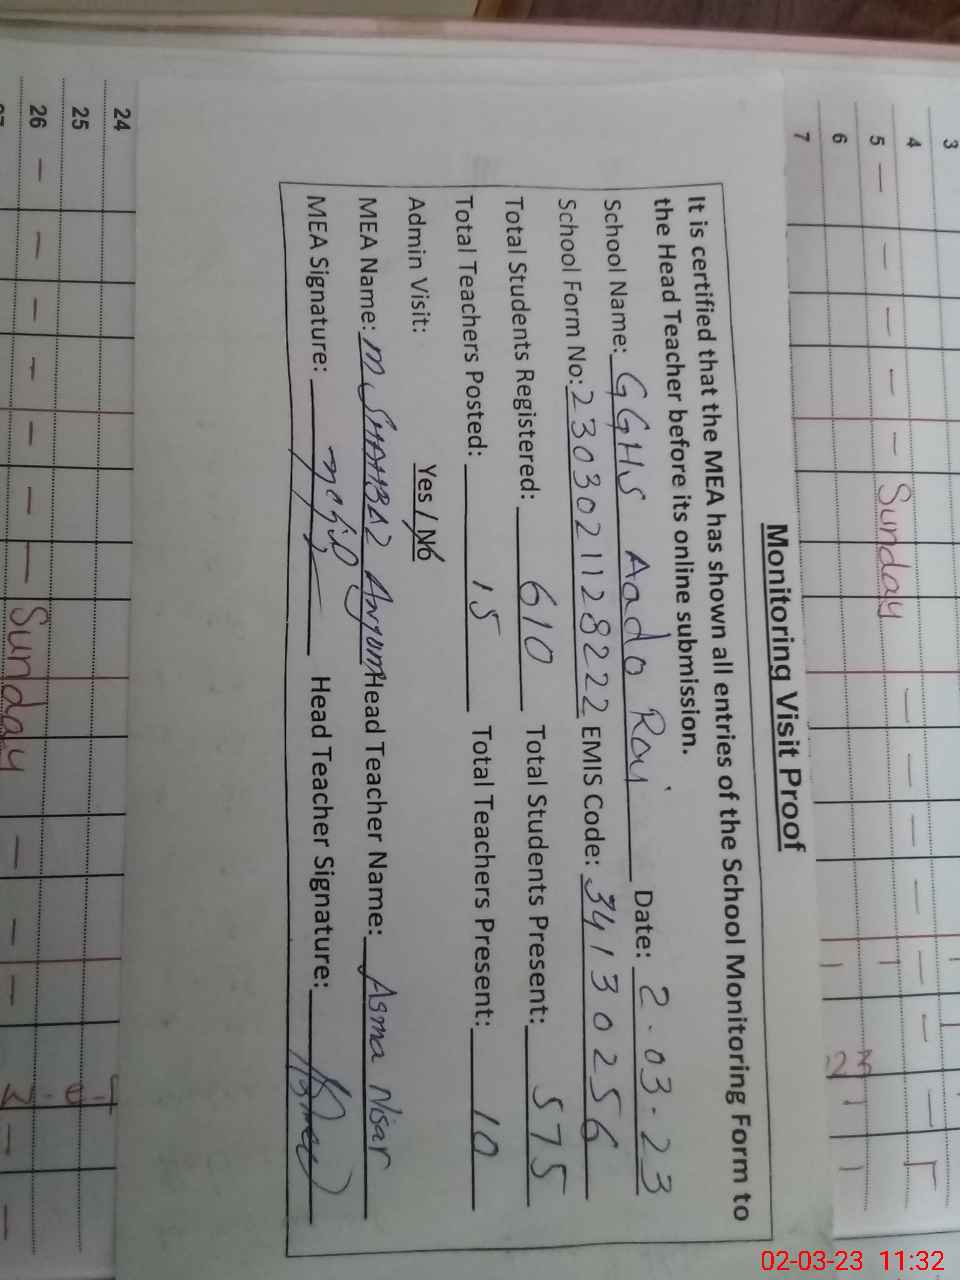 Monitoring Visit Proof
It is certified that the MEA has shown all entries of the School Monitoring Form to
the Head Teacher before its online submission.
School Name: GGHS Aado Rai Date: 2.03.23
School Form No: 2303021128222 EMIS Code: 34130256
Total Students Registered: 610 Total Students Present: 575
Total Teachers Posted: 15 Total Teachers Present: 10
Admin Visit: Yes / No
MEA Name: M SHAHBAZ Anjum Head Teacher Name: Asma Nisar
MEA Signature: Head Teacher Signature:
3
4
5 Sunday
6
7
24
25
26 Sunday
02-03-23 11:32